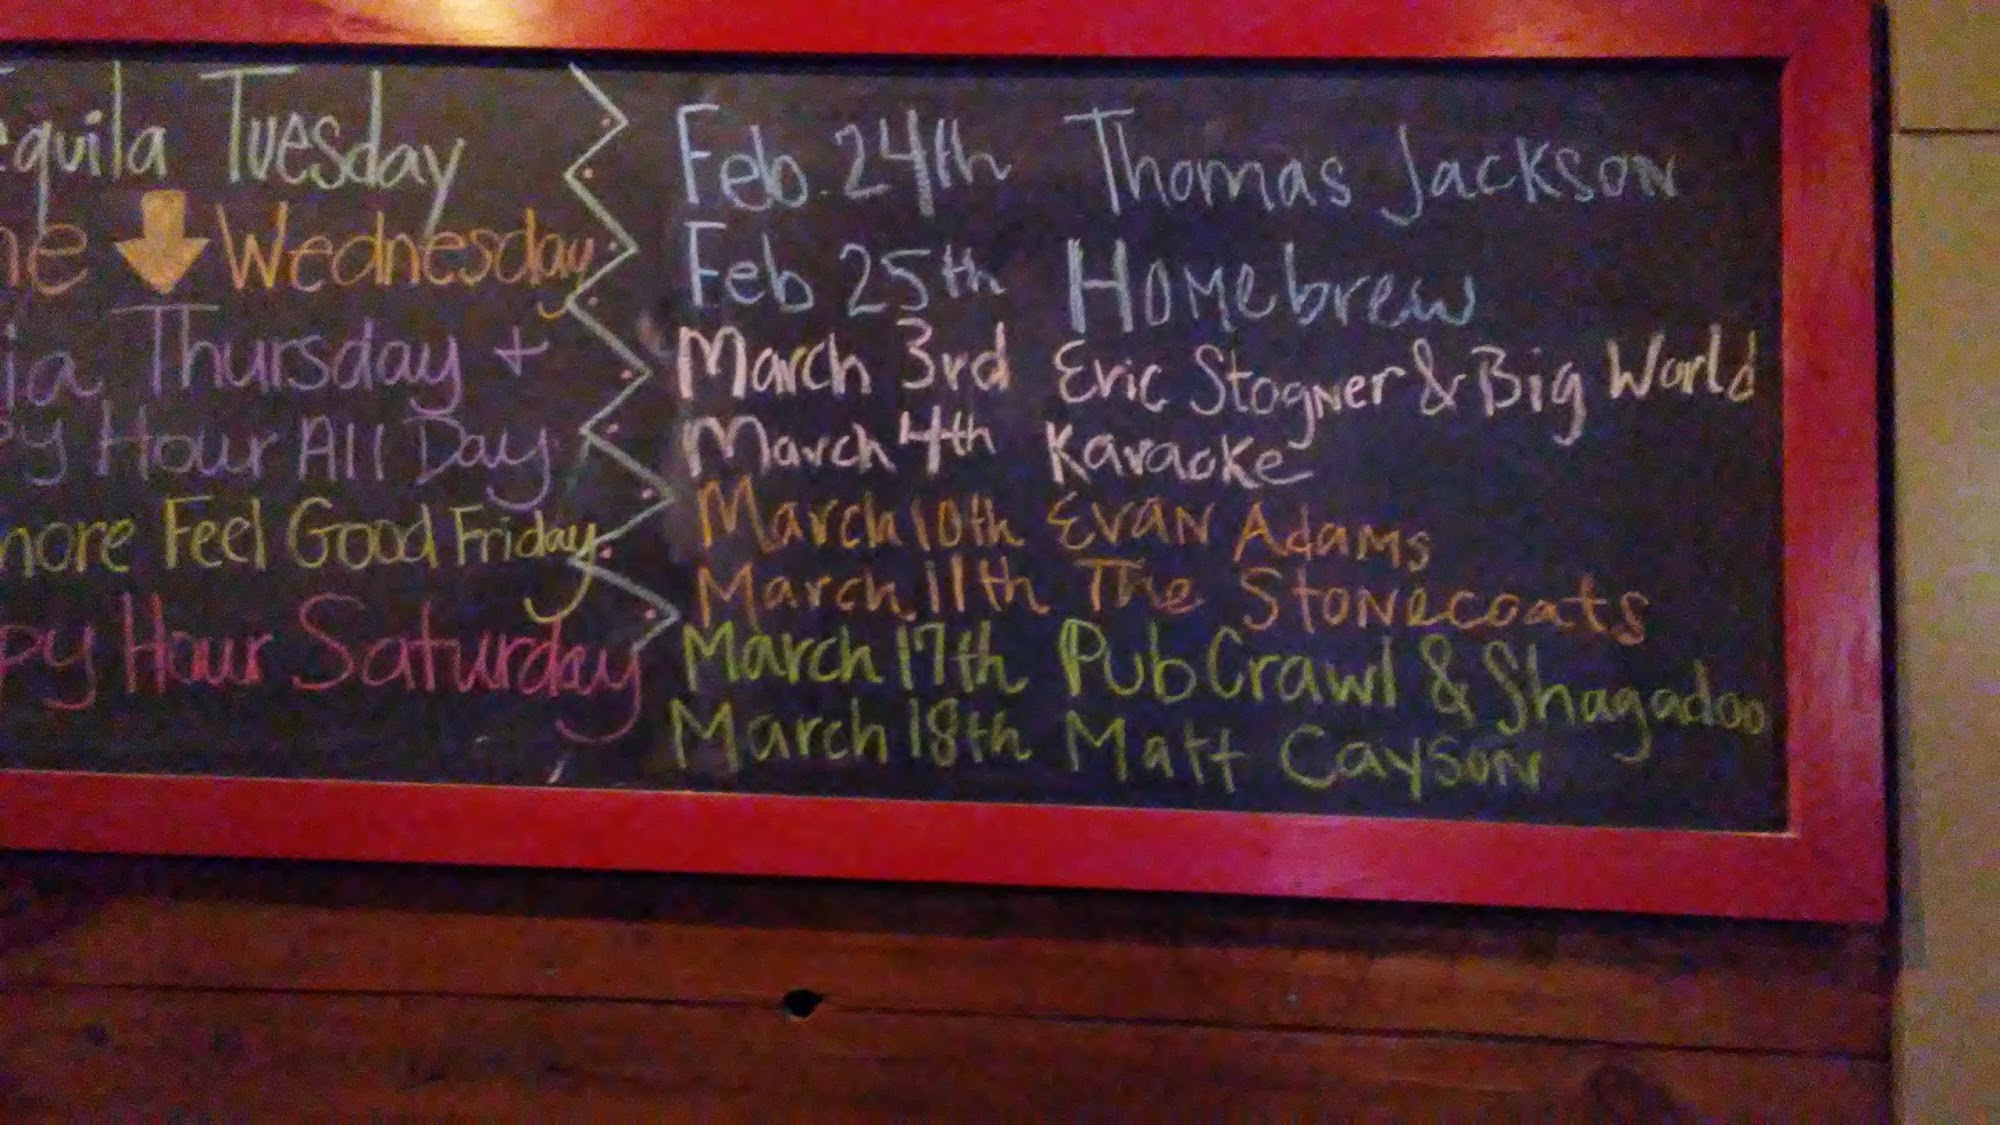 equila Tuesday
ne Wednesday
ia Thursday +
py Hour All Day
more Feel Good Friday
ppy Hour Saturday
Feb. 24th Thomas Jackson
Feb 25th Homebrew
March 3rd Eric Stogner & Big World
March 4th Karaoke
March 10th Evan Adams
March 11th The Stonecoats
March 17th Pub Crawl & Shagadoo
March 18th Matt Cayson